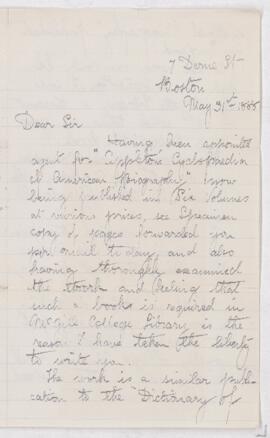 7 Derne St
Boston
May 31st 1888
Dear Sir
Having been appointed
agent for "Appletons Cyclopaedia
of American Biography" now
being published in Six Volumes
at various prices, see Specimen
copy of pages forwarded you
per mail to day, and also
having thoroughly examined
the work and feeling that
such a books is required in
McGill College Library is the
reason I have taken the liberty
to write you.
The work is a similar publi-
cation to the "Dictionary of